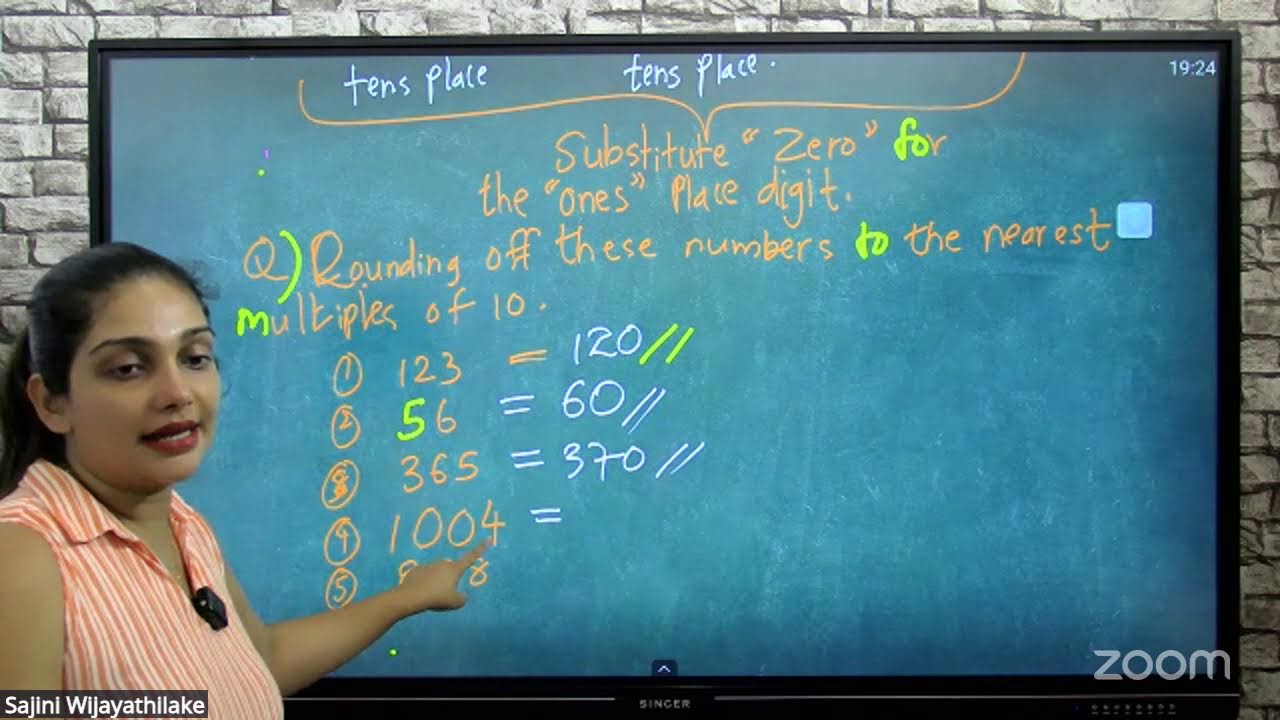 tens place tens place.
19:24
Substitute "Zero" for
the "ones" Place digit.
Q) Rounding off these numbers to the nearest
multiples of 10.
① 123 = 120 //
② 56 = 60 //
③ 365 = 370 //
④ 1004 =
⑤ 8
zoom
SINGER
Sajini Wijayathilake